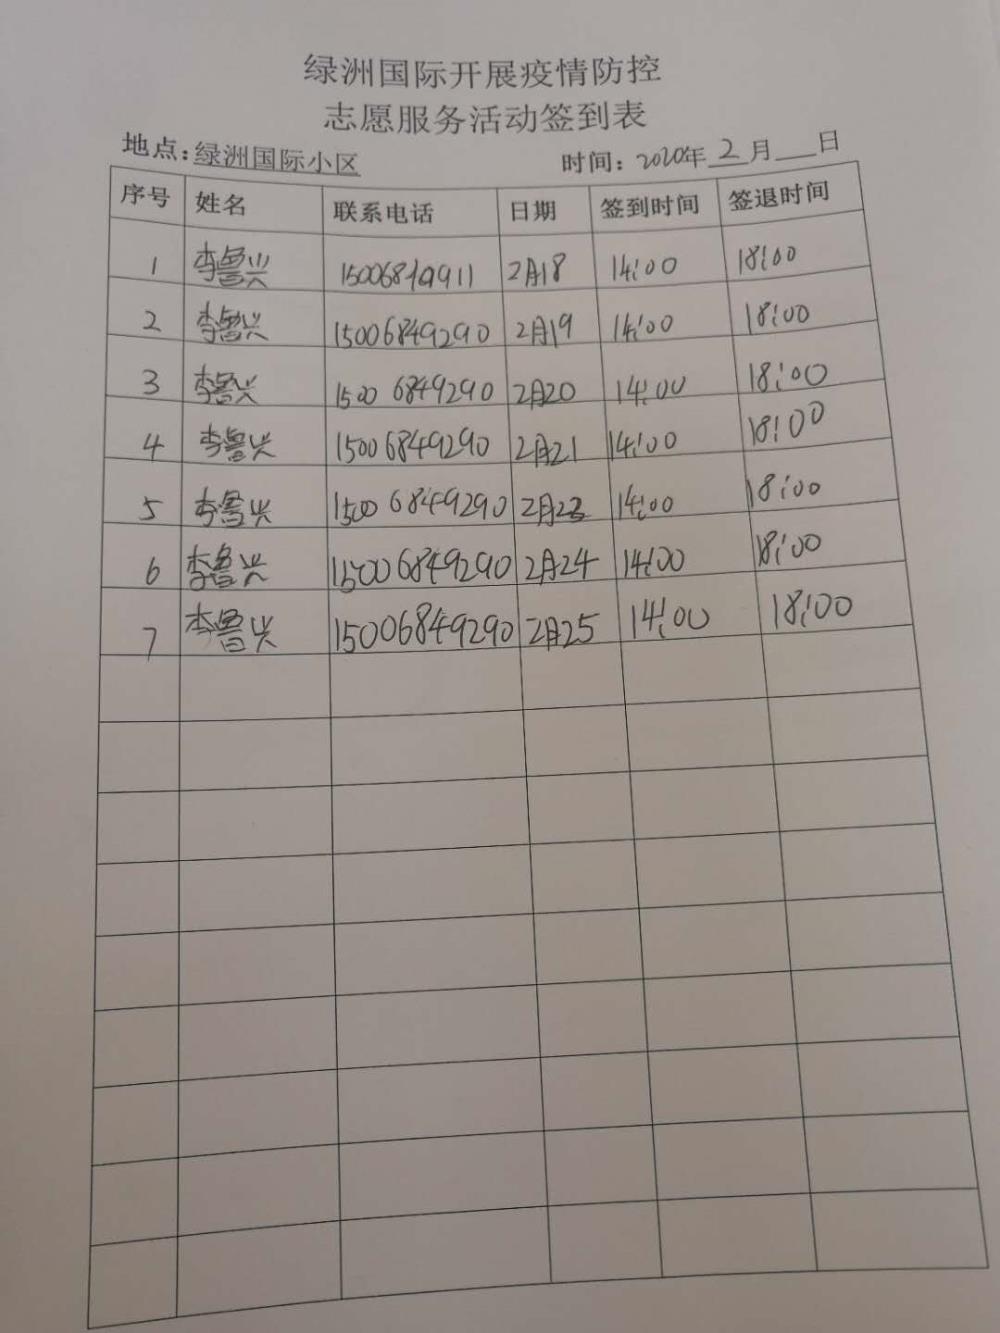 绿洲国际开展疫情防控
志愿服务活动签到表
地点：绿洲国际小区 时间：2020年 2 月___日
序号 姓名 联系电话 日期 签到时间 签退时间
1 李鲁兴 2月18 14:00 18:00
2 李鲁兴 15006849290 2月19 14:00 18:00
3 李鲁兴 1500 6849290 2月20 14:00 18:00
4 李鲁兴 15006849290 2月21 14:00 18:00
5 李鲁兴 1500 6849290 2月23 14:00 18:00
6 李鲁兴 15006849290 2月24 14:00 18:00
7 李鲁兴 15006849290 2月25 14:00 18:00